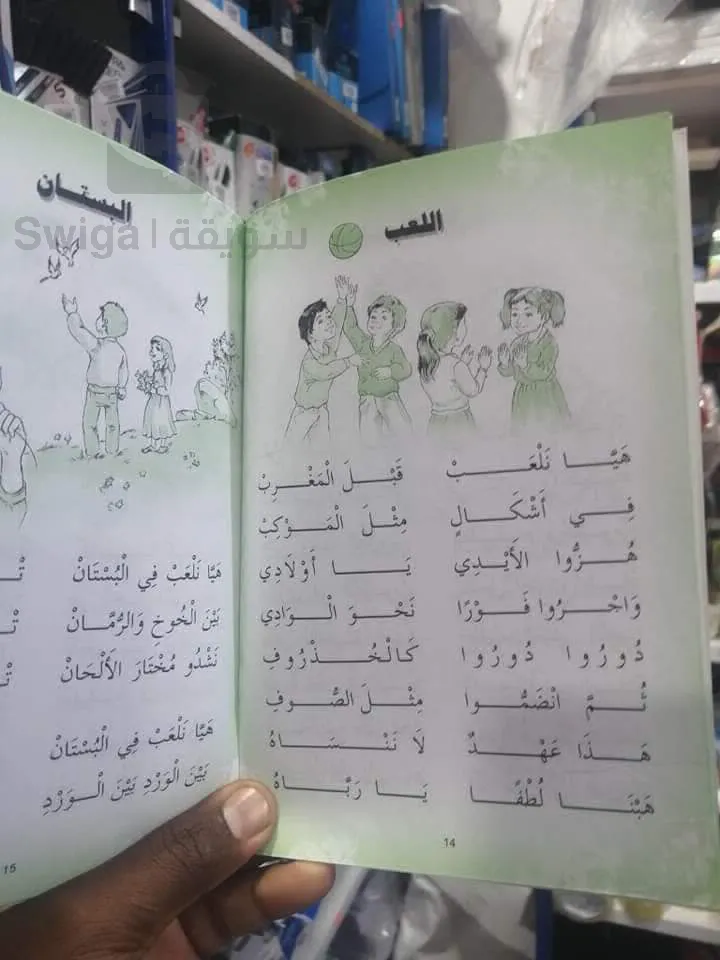 اللعب
هَيَّا نَلْعَبْ قَبْلَ الْمَغْرِبْ
فِي أَشْكَالٍ مِثْلَ الْمَوْكِبْ
هُزُّوا الأَيْدِي يَا أَوْلَادِي
وَاجْرُوا فَوْرًا نَحْوَ الْوَادِي
دُورُوا دُورُوا كَالْخُذْرُوفِ
ثُمَّ انْضَمُّوا مِثْلَ الصُّوفِ
هَذَا عَهْدٌ لَا نَنْسَاهُ
هَبْنَا لُطْفًا يَا رَبَّاهُ
14
البستان
هَيَّا نَلْعَبْ فِي الْبُسْتَانْ
بَيْنَ الْخُوخِ وَالرُّمَّانْ
نَشْدُو مُخْتَارَ الأَلْحَانْ
هَيَّا نَلْعَبْ فِي الْبُسْتَانْ
بَيْنَ الْوَرْدِ بَيْنَ الْوَرْدِ
15
Swiga | سويقة